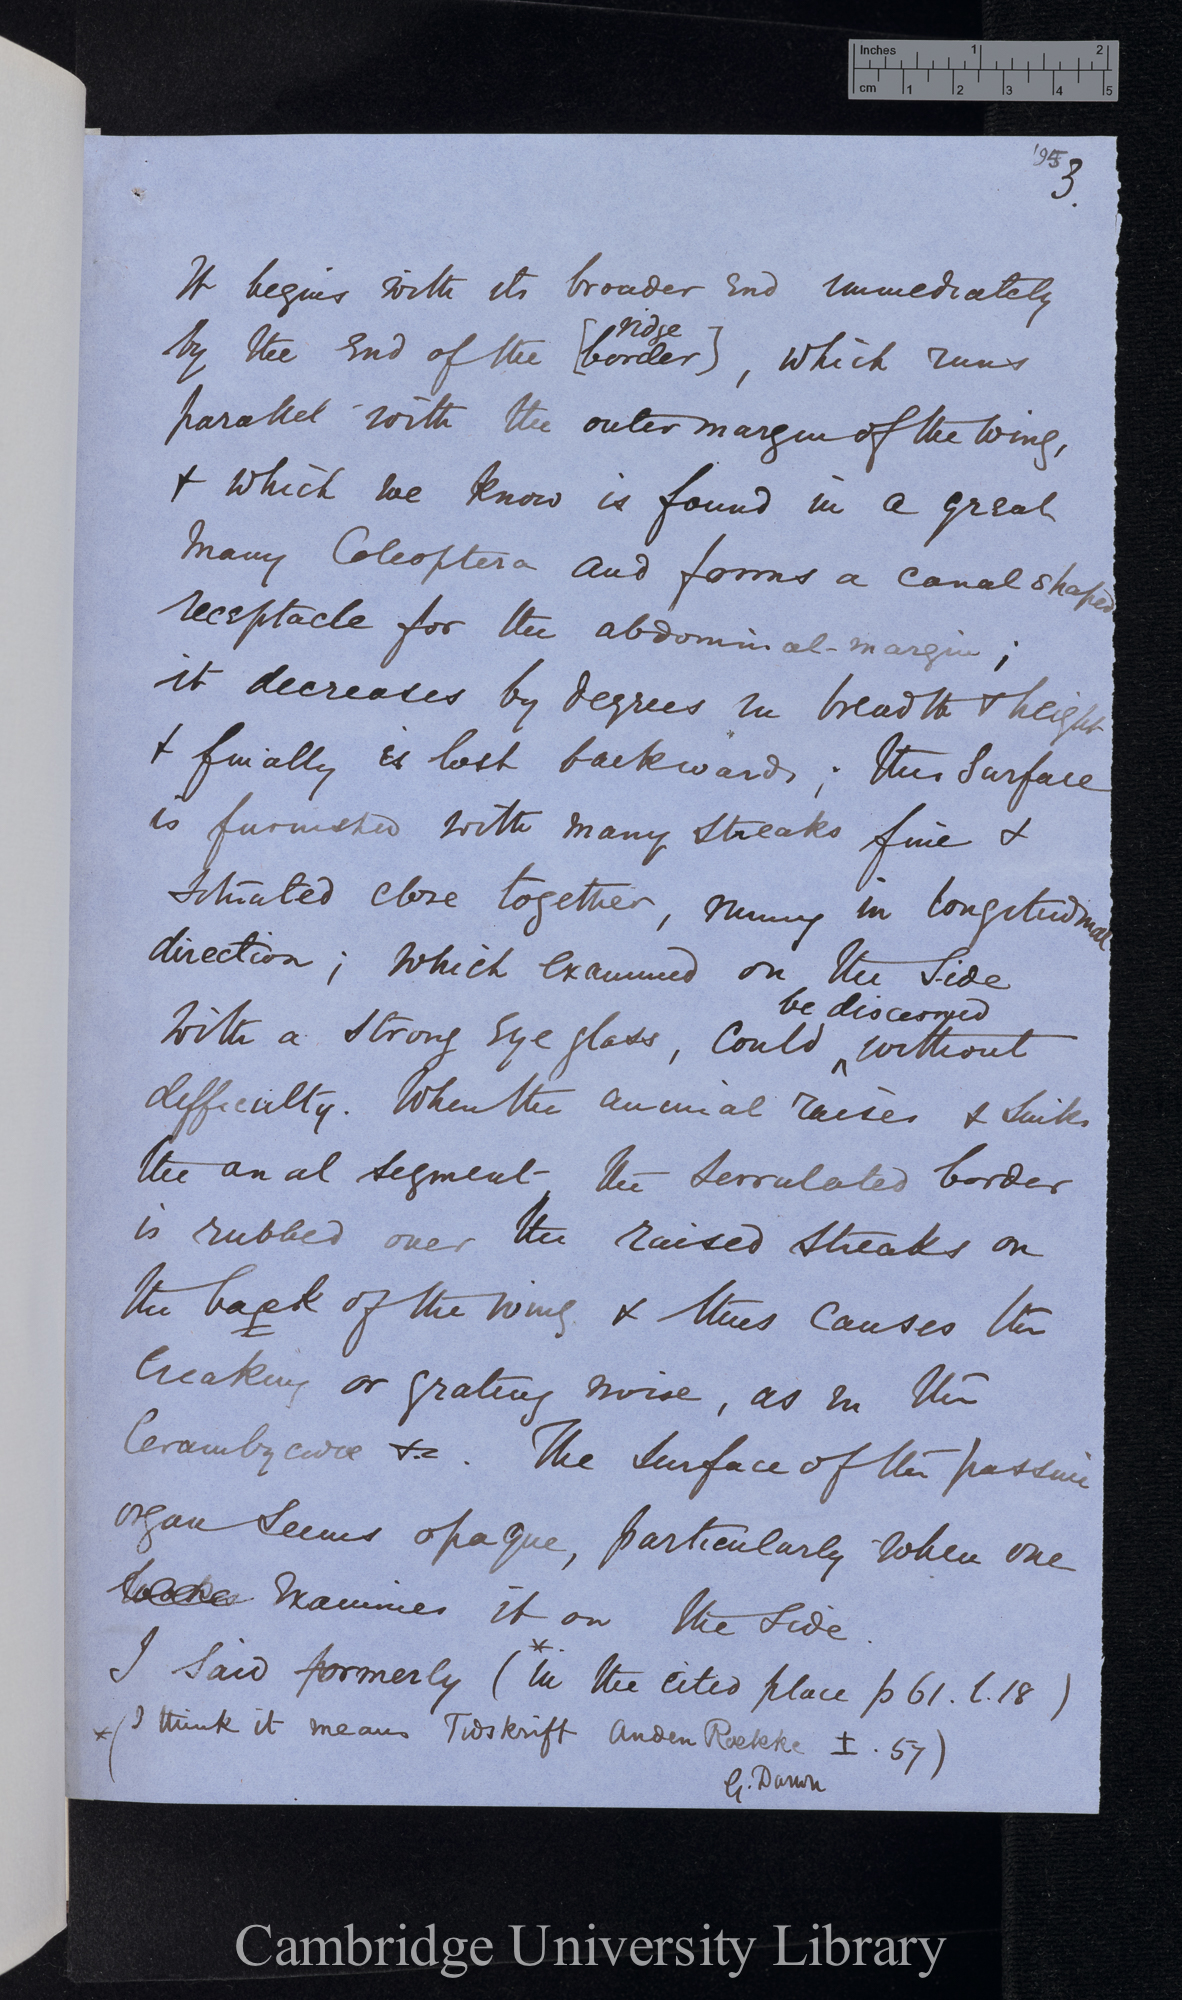 Inches 1 2
cm 1 2 3 4 5
195
3.
It begins with its broader end immediately
ridge
by the end of the [border], which runs
parallel with the outer margin of the wing,
& which we know is found in a great
many Coleoptera and forms a canal shaped
receptacle for the abdominal-margin;
it decreases by degrees in breadth & height
& finally is lost backwards; this surface
is furnished with many streaks fine &
situated close together, running in longitudinal
direction; which examined on the side
be discerned
with a strong eye glass, could ^ without
difficulty. When the animal raises & sinks
the anal segment, the serrulated border
is rubbed over the raised streaks on
the back of the wing & thus causes the
creaking or grating noise, as in the
Cerambycidae &c. The surface of the passive
organ seems opaque, particularly when one
looks examines it on the side.
I said formerly (*in the cited place p 61. l. 18)
*(I think it means Tidskrift Anden Raekke I. 57)
G. Darwin
Cambridge University Library